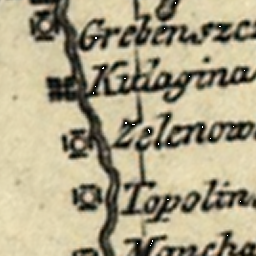 Grebenszcz
Kudagina
Zelenow
Topolin
Mancha